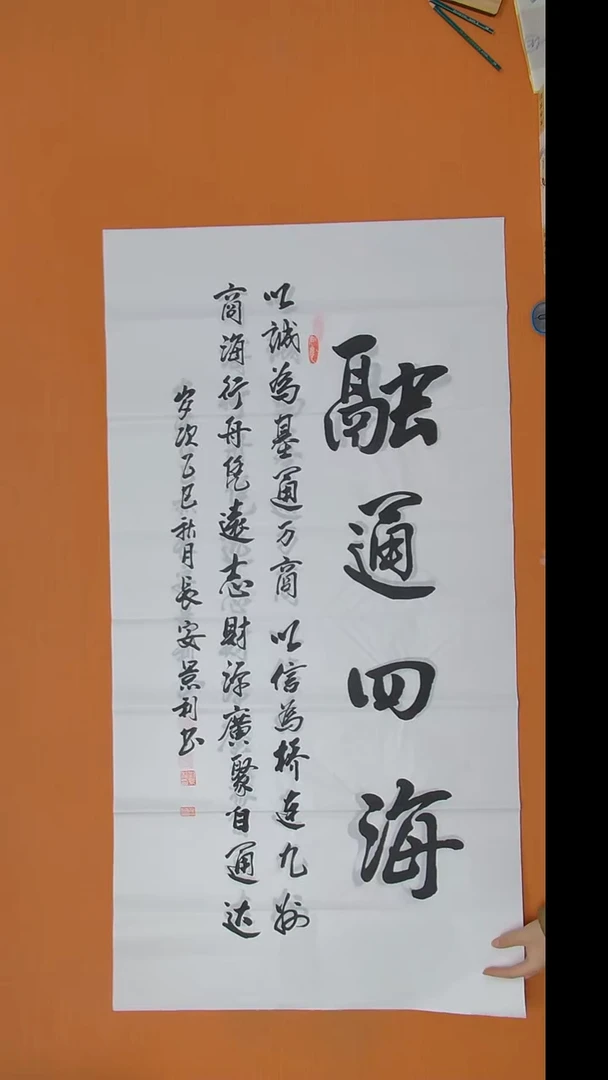 融通四海
以誠為基通万商 以信為桥连九州
商海行舟凭遠志財源廣聚自通达
岁次乙巳秋月長安景利书